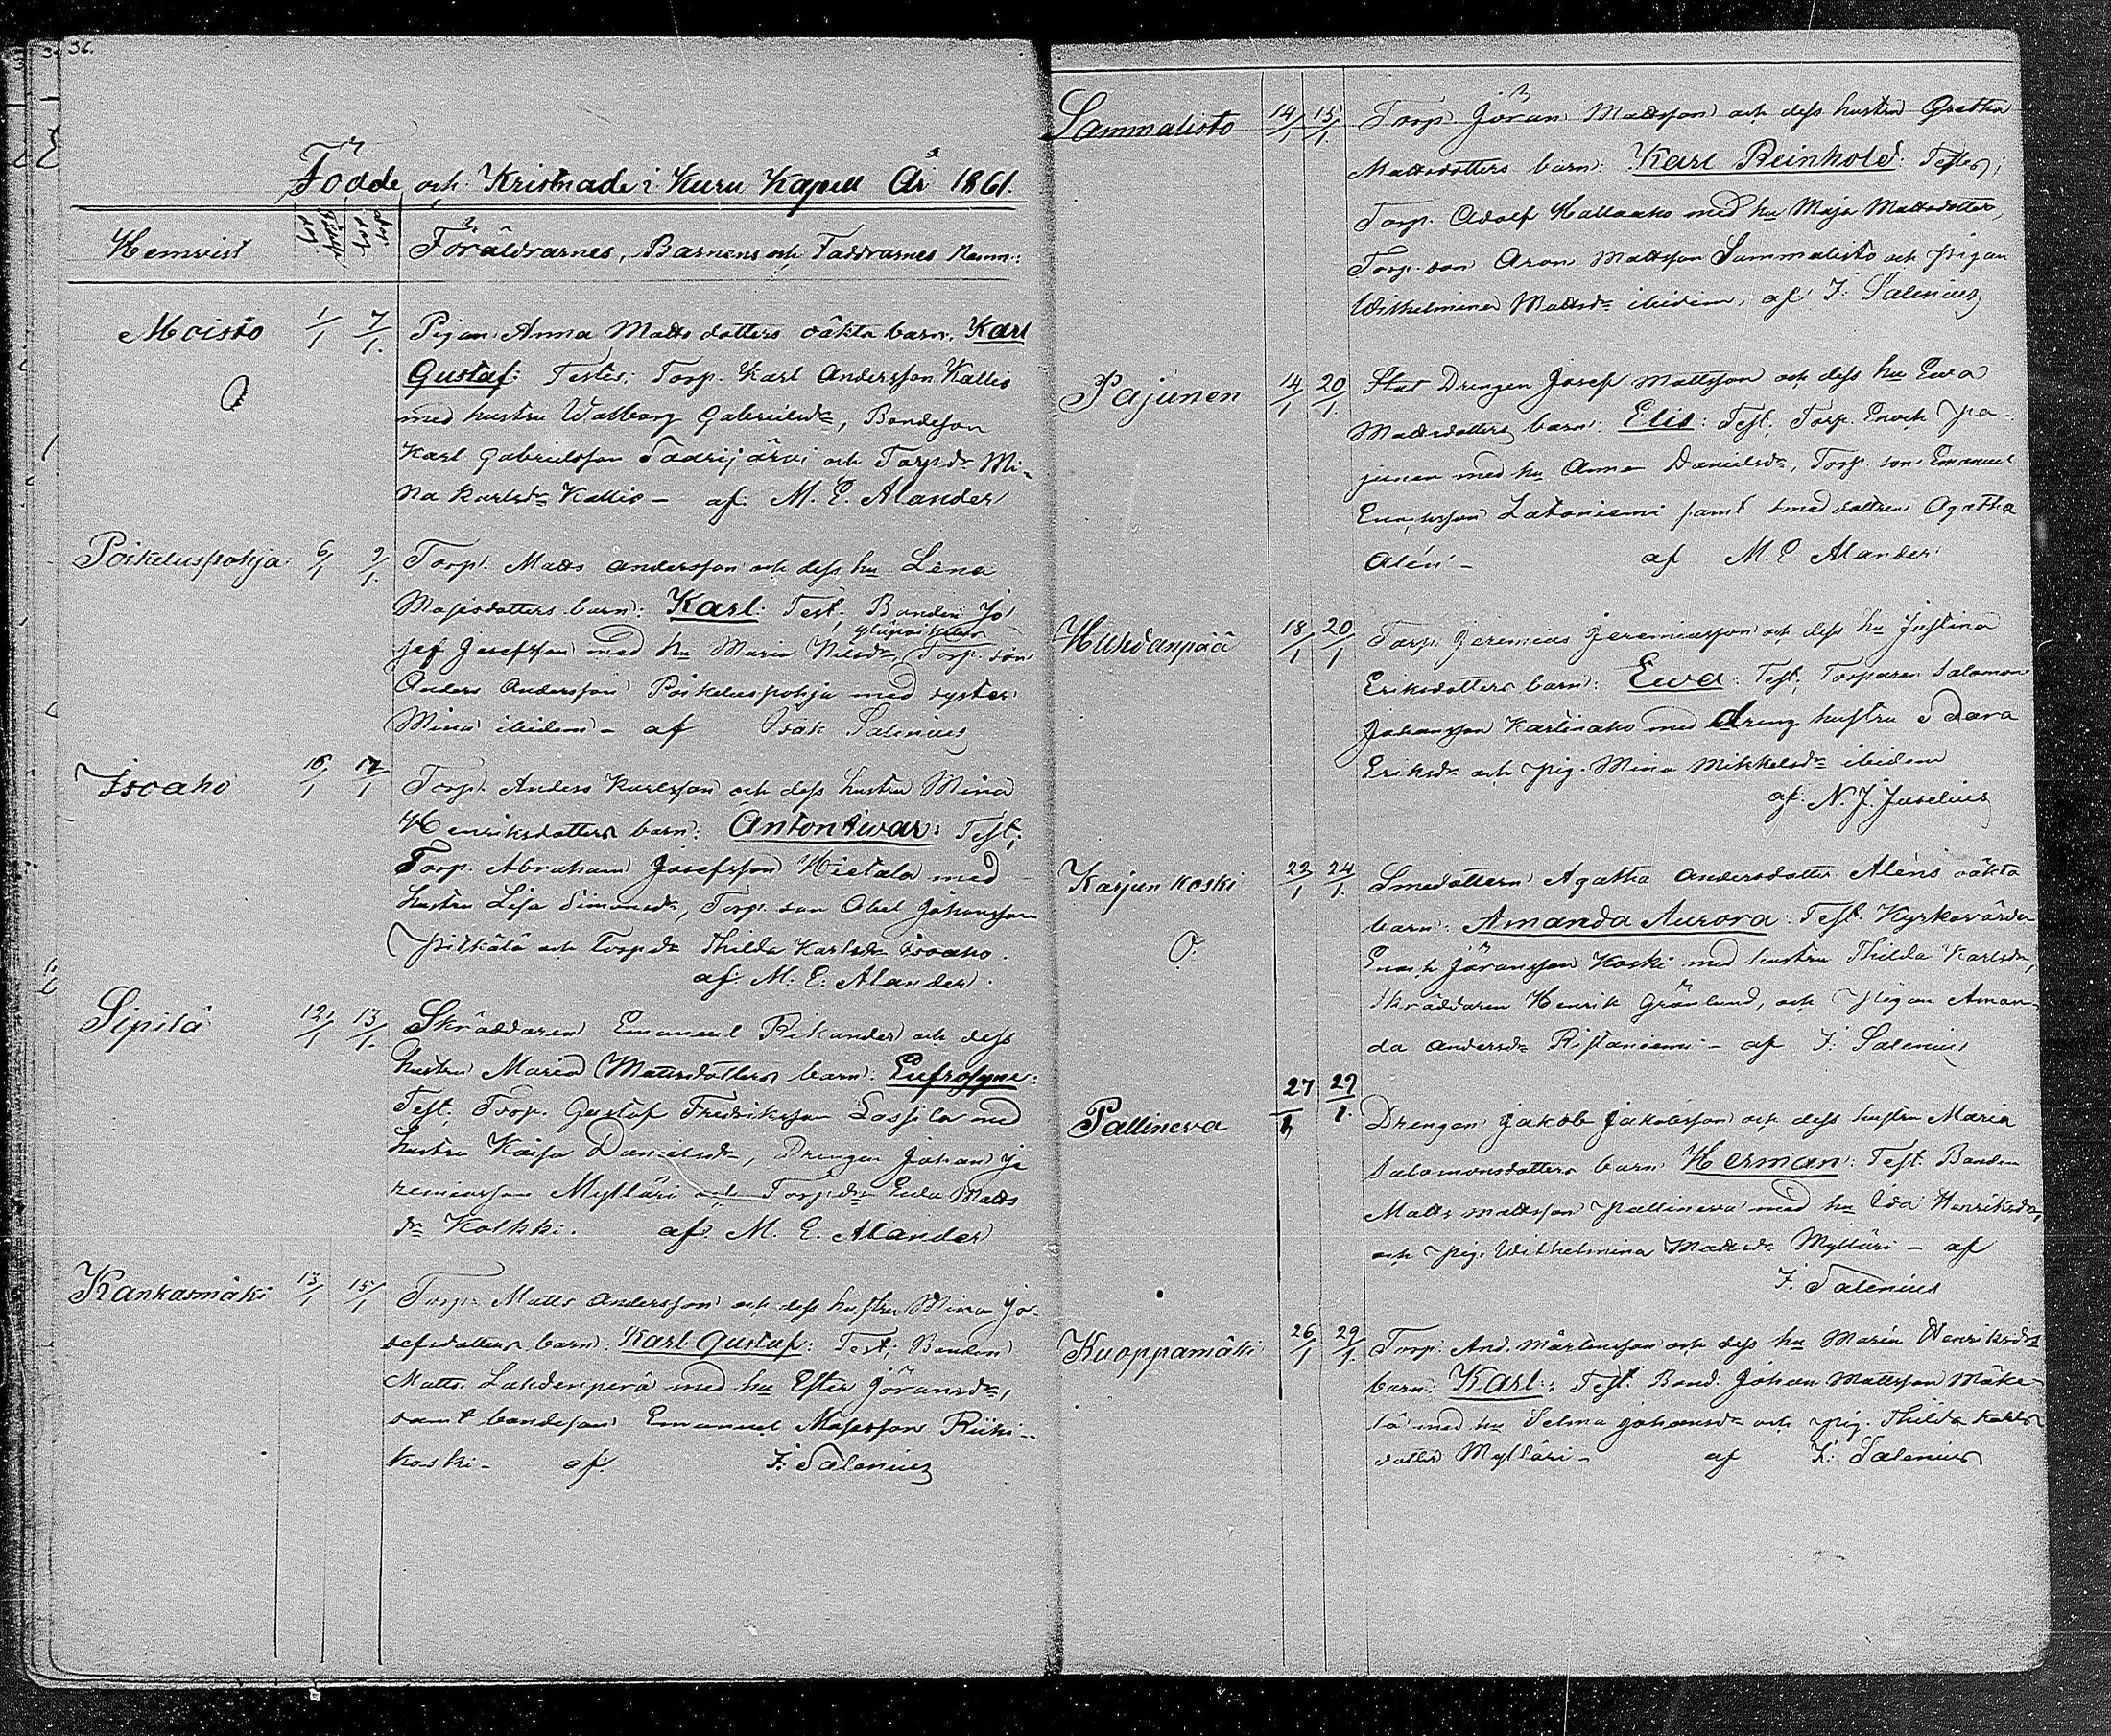 32.
Födde och Kristnade i Kuru Kapell År 1861.
Hemvist Födelse dag Föräldrarnes, Barnens och Faddrarnes Namn:
Moisto 1/1 7/1. Pigan Anna Matts dotters oäkta barn: Karl
O Gustaf: Testes: Torp. Karl Andersson Kallio
med hustru Walborg Gabrielsdr, Bondeson
Karl Gabrielsson Saarijärvi och Torpdr Mi-
na Karlsdr Kallio – af M. E. Alander
Poikeluspohja 6/1 9/1. Torp. Matts Andersson och dess hu Lena
Mosisdotters barn: Karl: Test, Bonden Jo-
sef Josefsson med hu Maria Nilsdr, Torp. son
Anders Andersson Poikeluspohja med syster
Mina ibidem – af Isak Salenius
Isoaho 16/1 17/1 Torp. Anders Karlsson och dess hustru Mina
Henriksdotters barn: Anton Iwar: Test;
Torp. Abraham Josefsson Hietala med
hustru Lisa Simonsdr, Torp. son Abel Johansson
Pitkälä och Torpdr Thilda Karlsdr Isoaho.
af M. E. Alander.
Sipilä 12/1 13/1. Skräddaren Emanuel Rikander och dess
hustru Maria Mattsdotters barn: Eufrosyne:
Test; Torp. Gustaf Fredriksson Lassila med
hustru Kaisa Danielsdr, Drengen Johan Je
remiasson Mylläri och Torpdr Eva Matts
dr Kolkki. af M. E. Alander
Kankasmäki 13/1 15/1 Torp. Matts Andersson och dess hustru Mina Jo-
sefsdotters barn: Karl Gustaf: Test: Bonden
Matts Lahdenperä med hu Ester Göransdr,
samt bondeson Emanuel Mosisson Riihi-
koski – af I: Salenius
Sammalisto 14/1 15/1. Torp. Göran Mattsson och dess hustru Gretha
Mattsdotters barn: Karl Reinhold: Testes;
Torp. Adolf Kallaaho med hu Maja Mattsdotter,
Torp. son Aron Mattsson Sammalisto och pigan
Wilhelmina Mattsdr ibidem, af I: Salenius
Pajunen 14/1 20/1. Stat Drengen Josef Mattsson och dess hu Ewa
Mattsdotters barn: Elis: Test, Torp. Enoch Pa-
junen med hu Anna Danielsdr, Torp. son Emanuel
Enochsson Latoniemi samt smed dottren Agatha
Alén – af M. E. Alander
Huhdanpää 18/1 20/1 Torp. Jeremias Jeremiasson och dess hu Justina
Eriksdotters barn: Ewa: Test, Torparen Salomon
Johansson Karlinaho med dreng hustru Sara
Eriksdr och pig. Mina Mikkelsdr ibidem
af N. J. Juselius
Karjun koski 22/1 24/1. Smedottern Agatha Andersdotter Aléns oäkta
barn: Amanda Aurora: Test. Kyrkovärden
O. Enoch Göransson Koski med hustru Thilda Karlsdr,
Skräddaren Henrik Grönlund, och Pigan Aman-
da Andersdr Ristaniemi – af I: Salenius
Pallineva 27/1 29/1. Drengen Jakob Jakobsson och dess hustru Maria
Salomonsdotters barn Herman: Test. Bonden
Matts Mattsson Pallineva med hu Eva Henriksdr,
och pig. Wilhelmina Mattsdr Mylläri – af
I. Salenius
Kuoppamäki 26/1 29/1. Torp. And. Mårtensson och dess hu Maria Henriksdrs
barn: Karl: Test. Bond. Johan Mattsson Mäke-
lä med hu Selma Johansdr och pig. Thilda Karls
dotter Mylläri – af I: Salenius